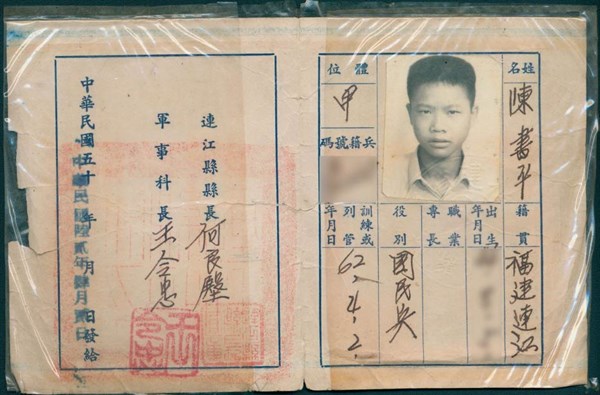 姓名
陳書平
籍貫
福建連江
出生
年月日
職業
專長
役別
國民兵
體位
甲
兵籍號碼
訓練或
列管
年月日
62.4.2.
連江縣縣長
軍事科長
中華民國五十 年 月 日發給
中華民國陸貳年肆月 日